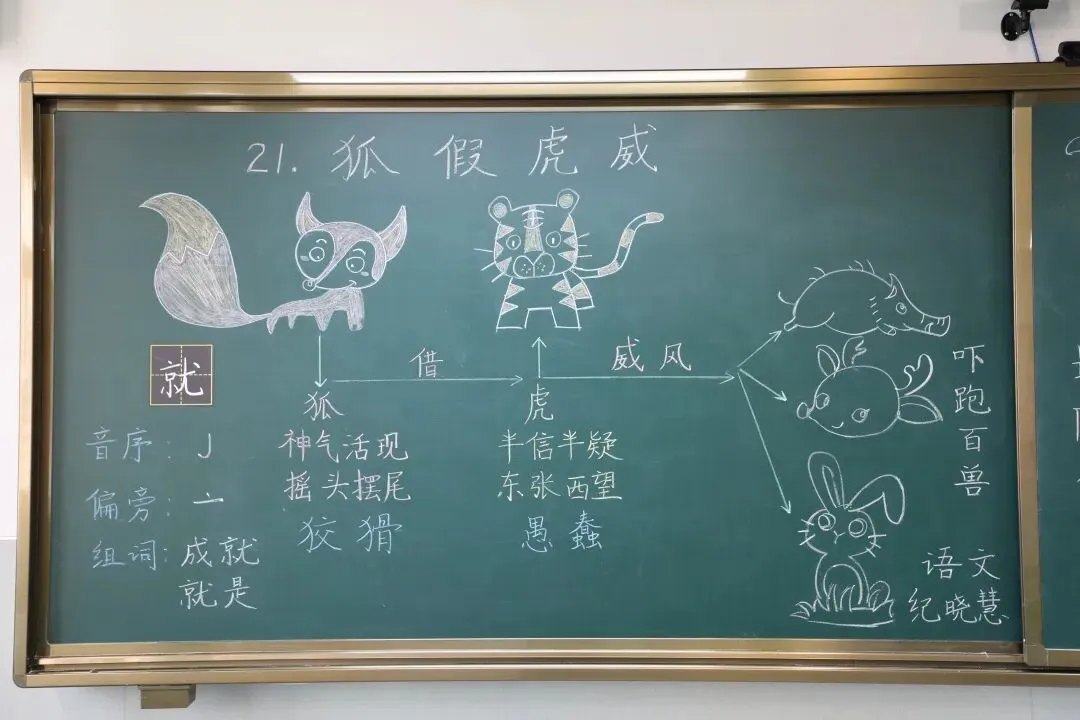 21. 狐假虎威
就
音序：J
偏旁：亠
组词：成就
就是
狐
神气活现
摇头摆尾
狡猾
借
虎
半信半疑
东张西望
愚蠢
威风
吓跑百兽
语文
纪晓慧